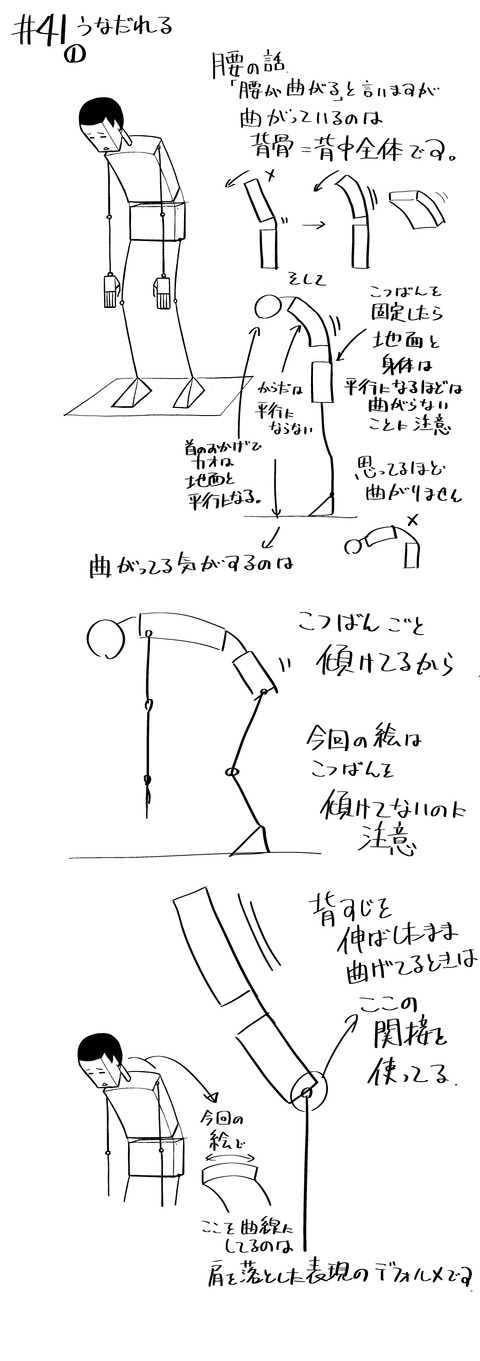 #41 うなだれる
①
腰の話
「腰が曲がる」と言いますが
曲がっているのは
背骨=背中全体です。
×
そして
こつばんを
固定したら
地面と
身体は
平行になるほどは
曲がらない
ことに注意
からだは
平行に
ならない
首のおかげで
カオは
地面と
平行になる。
思ってるほど
曲がりません
×
曲がってる気がするのは
こつばんごと
傾けてるから
今回の絵は
こつばんを
傾けてないのに
注意
背すじを
伸ばしたまま
曲げてるときは
ここの
関接を
使ってる.
今回の
絵で
ここを曲線に
してるのは
肩を落とした表現のデフォルメです